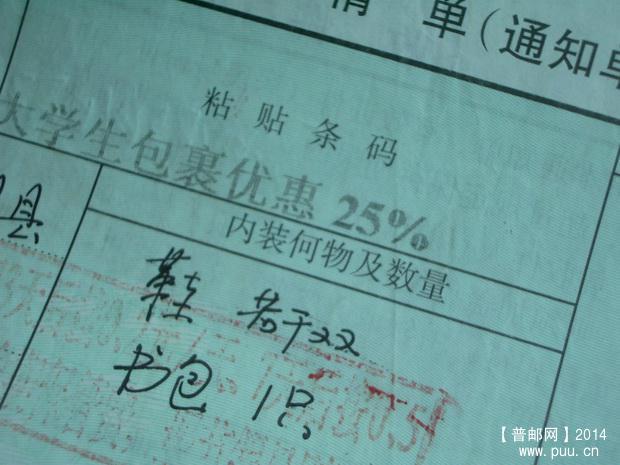 清单(通知单
粘贴条码
大学生包裹优惠 25%
内装何物及数量
县
鞋 若干双
书包 1只
【普邮网】2014
www.puu.cn